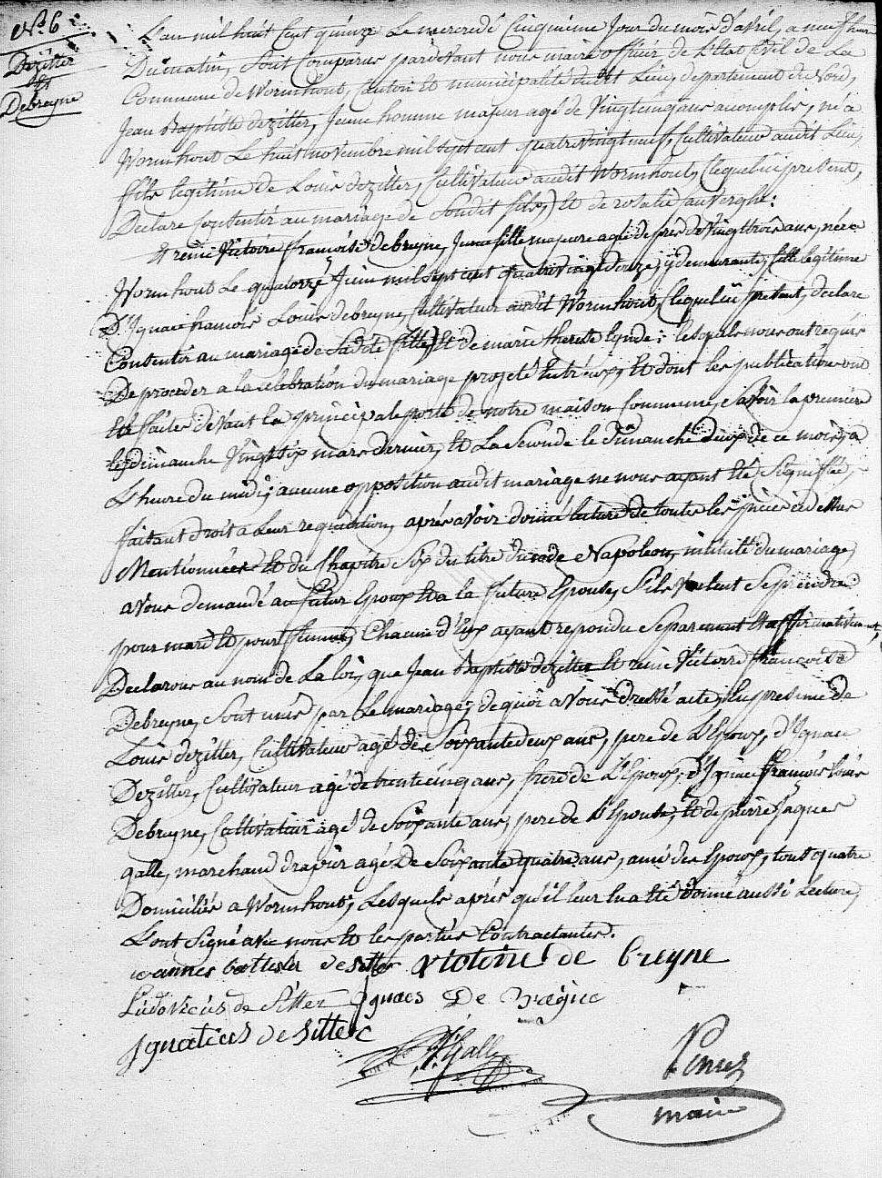 N.° 6
Dezitter
et
Debreyne
L'an mil huit Cent quinze Le mercredi Cinquieme Jour du mois d'avril, a neuf heure
Du matin, Sont Comparus pardevant nous maire officier de L'Etat Civil de La
Commune de Wormhout, Canton et municipalité dudit Lieu, departement du Nord,
Jean Baptiste dezitter, Jeune homme majeur agé de Vingt cinq ans acomplis, né à
Wormhout Le huit novembre mil sept cent quatre vingt neuf, Cultivateur audit Lieu,
fils legitime de Louis dezitter, Cultivateur audit Wormhout, (lequel ici present,
Declare Consentir au mariage de Soudit fils,) et de rosalie :
Et reine Victoire françoise debreyne, Jeune fille majeure agé de pres de Vingt trois ans, née a
Wormhout Le quatorze Juin mil sept cent quatre vingt douze, y demeurante, fille legitime
D'Ignace françois Louis debreyne, Cultivateur audit Wormhout, (lequel ici present, declare
Consentir au mariage de Sadite fille) et de marie therese ; lesquels nous ont requis
De proceder a la celebration du mariage projeté entr'eux, et dont les publications ont
Eté faites devant la principale porte de notre maison Commune, Savoir la premiere
le dimanche Vingt Six mars dernier, et La Seconde le dimanche deux de ce mois, a
L'heure du midi; aucune opposition audit mariage ne nous ayant eté Signifiée,
faisant droit a Leur requisition, après avoir donné lecture de toutes les pieces ci dessus
Mentionnées et du Chapitre Six du titre du code Napoleon, intitulé du mariage,
avons demandé au futur Epoux et a la future Epouse, S'ils veulent Se prendre
pour mari et pour femme, Chacun d'Eux ayant repondu Separement et affirmativement,
Declarons au nom de La loi, que Jean Baptiste dezitter et reine Victoire françoise
Debreyne, Sont unis par Le mariage; de quoi avons dressé acte, en presence de
Louis dezitter, Cultivateur agé de Soixante deux ans, pere de L'Epoux, d'Ignace
Dezitter, Cultivateur agé de trente cinq ans, frere de L'Epoux, d'Ignace françois Louis
Debreyne, Cultivateur agé de Soixante ans, pere de L'Epouse, et de pierre Jaques
galle, marchand drapier agé de Soixante quatre ans, ami des Epoux, tous quatre
Domiciliés a Wormhout, Lesquels après qu'il leur en a eté donné aussi Lecture,
L'ont Signé avec nous et les parties Contractantes.
de Sitter Victoine de breyne
Ludovicus de Sitter Ignaes De
Ignatius de Sitter
Galle
maire